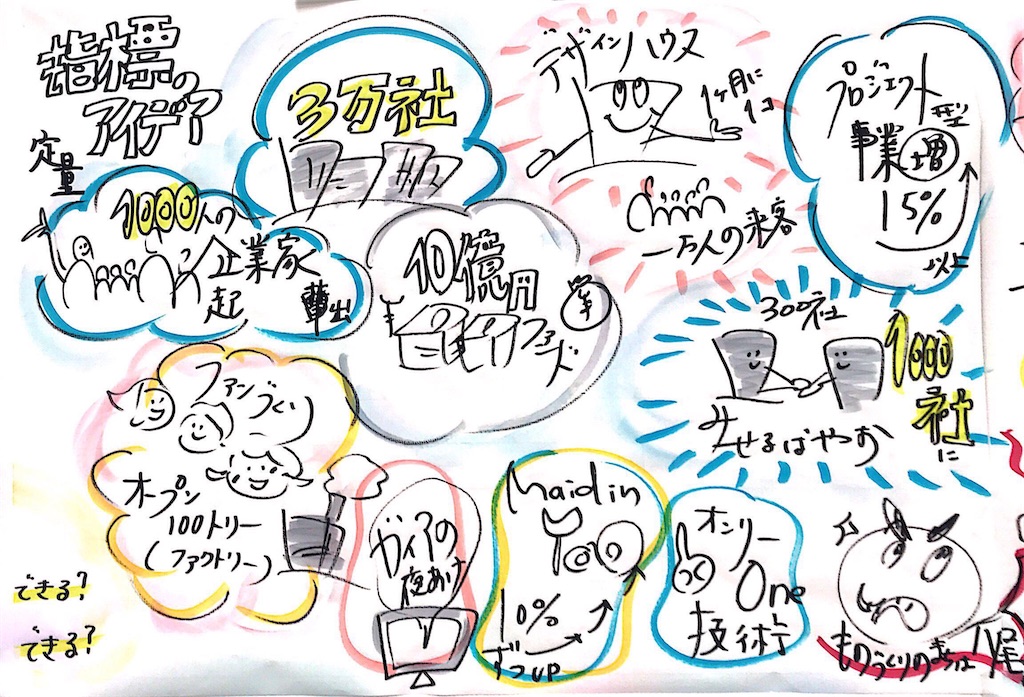 指標の
アイデア
定量
3万社
デザインハウス
1ヶ月に
1コ
一万人の来客
プロジェクト
型
事業増
15%
以上
1000人の
企業家
起
輩出
10億円
ファンズ
300社
1000
社に
みせるばやお
ファンづくり
オープン
100トリー
(ファクトリー)
ガイアの
夜あけ
Maid in
Yao
10%
ずつUP
オンリー
One
技術
ものづくりのまちは
八尾
できる?
できる?